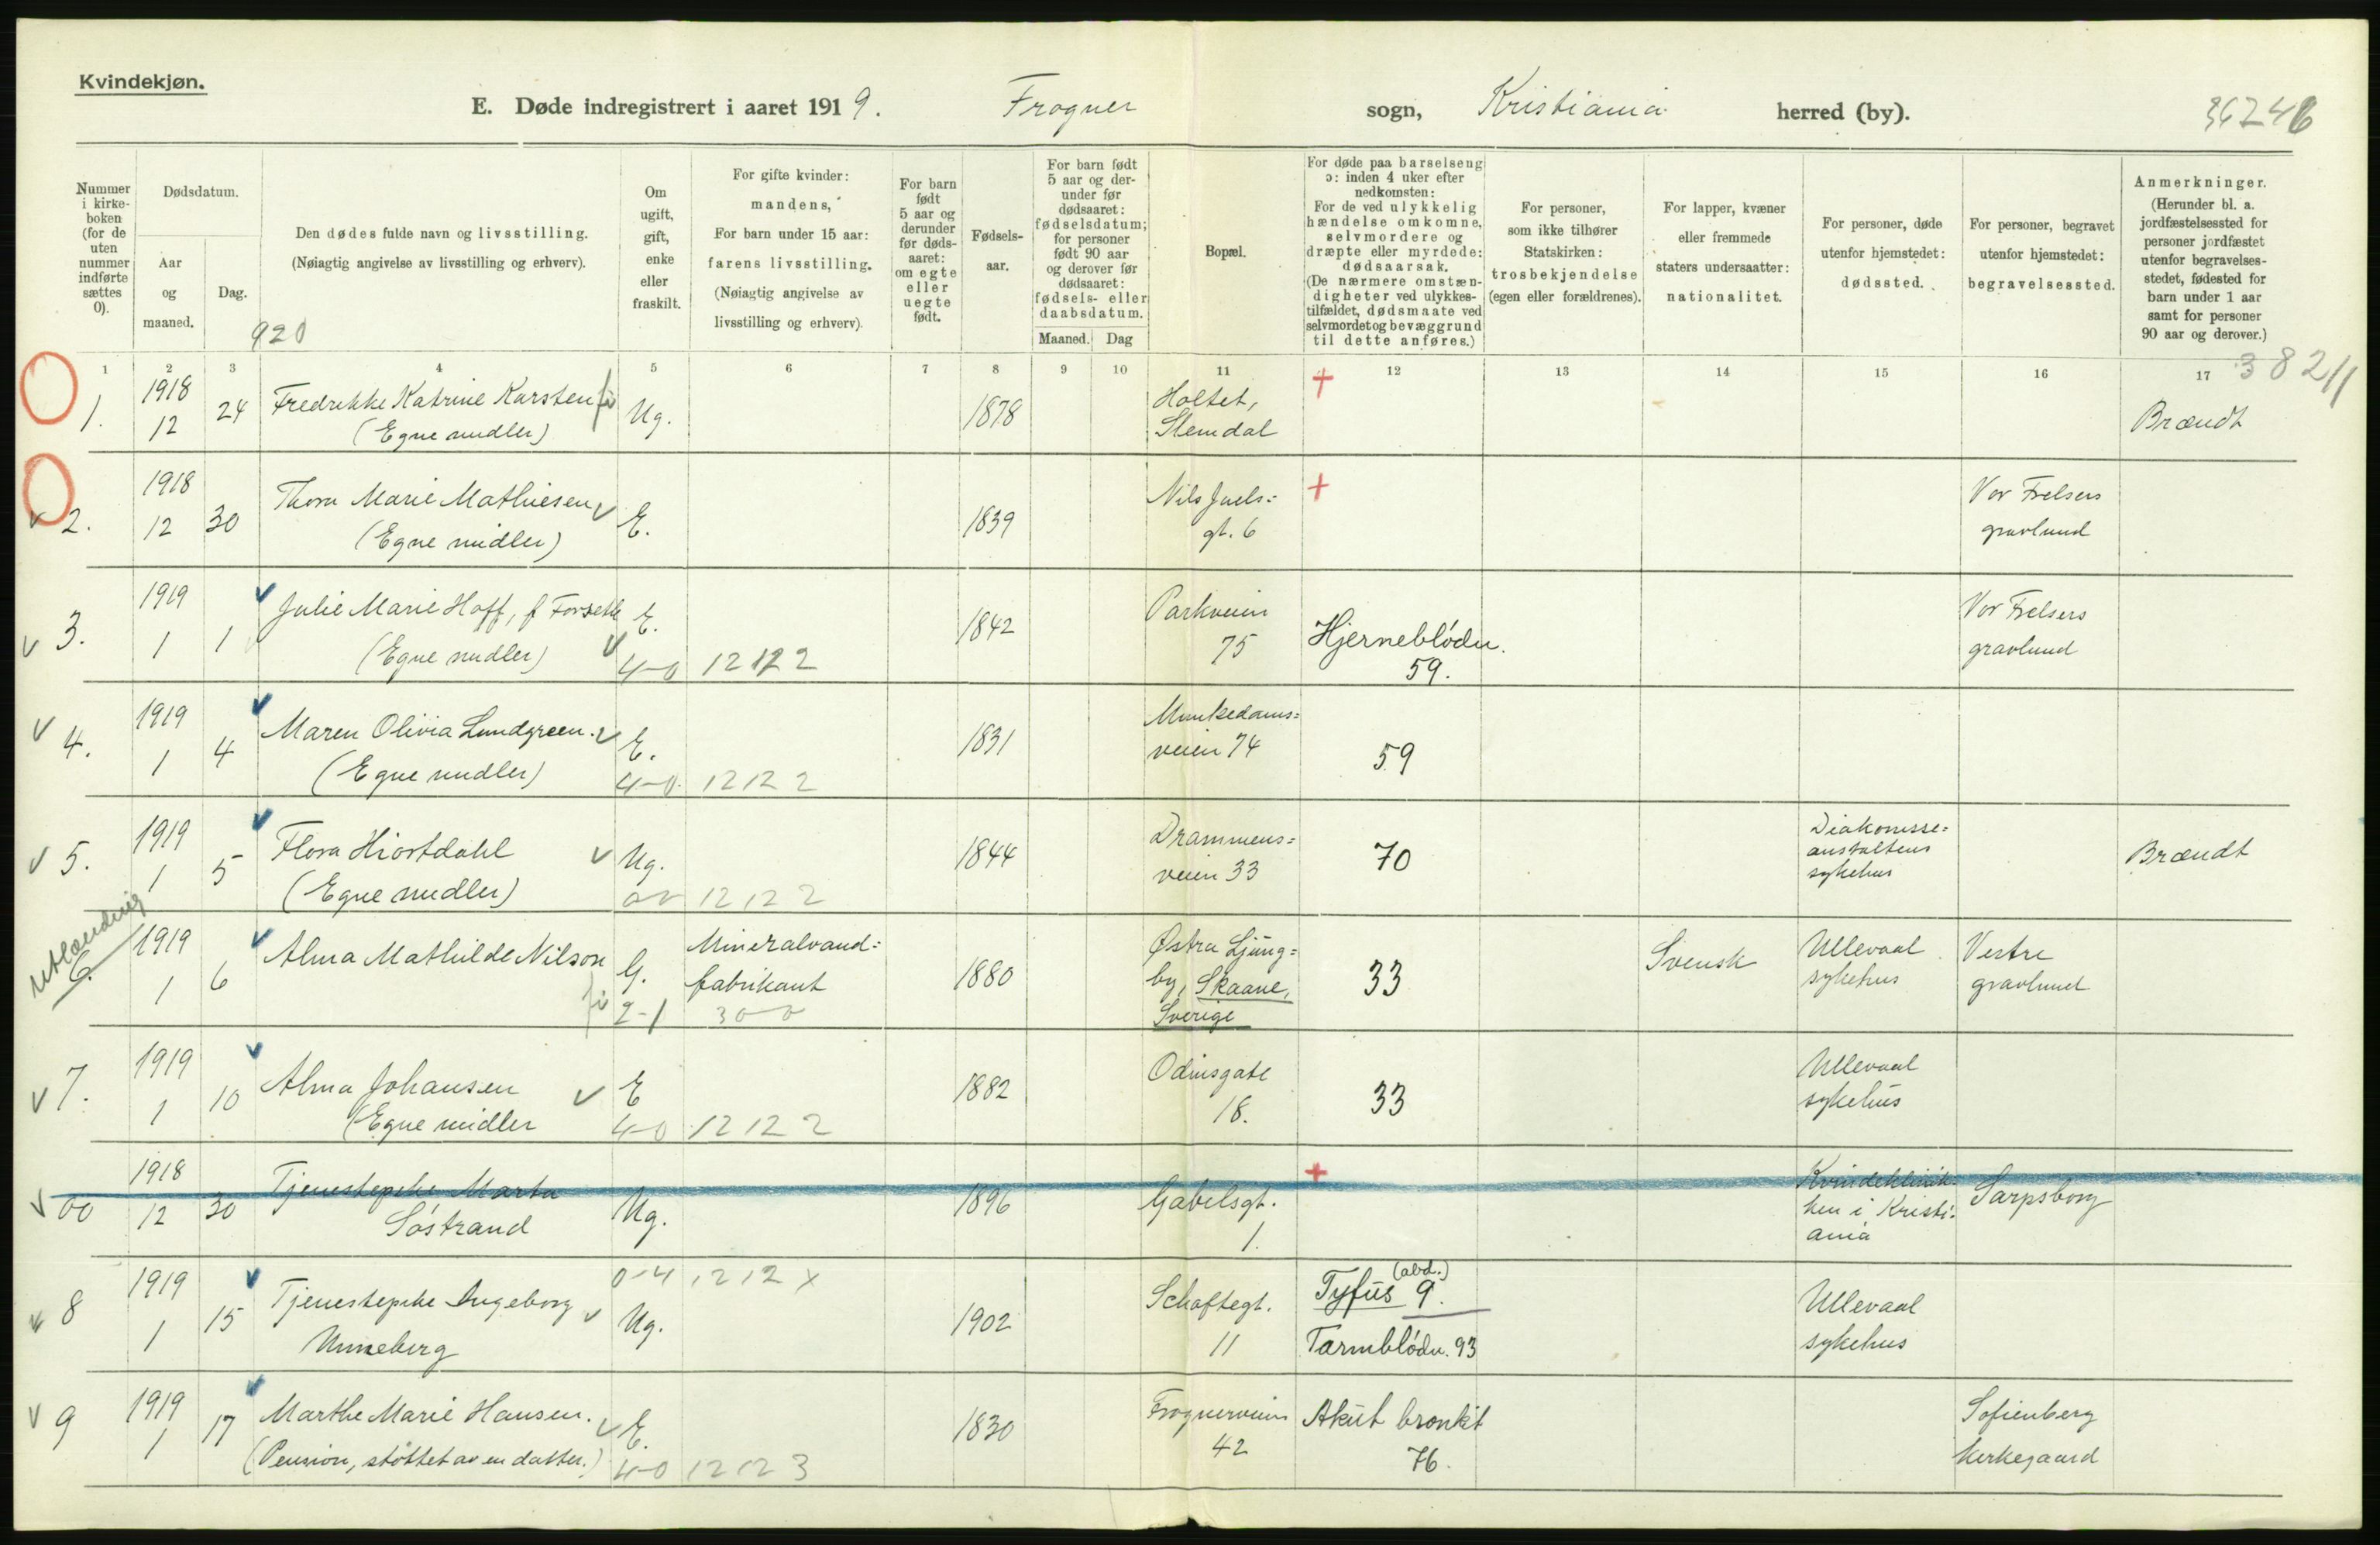 Kvindekjøn.
E. Døde indregistrert i aaret 1919. Frogner sogn, Kristiania herred (by).
Nummer i kirkeboken (for de uten nummer indførte sættes 0).
Dødsdatum.
Aar og maaned.
Dag.
Den dødes fulde navn og livsstilling.
(Nøiagtig angivelse av livsstilling og erhverv).
920
Om ugift, gift, enke eller fraskilt.
For gifte kvinder: mandens,
For barn under 15 aar: farens livsstilling.
(Nøiagtig angivelse av livsstilling og erhverv).
For barn født 5 aar og derunder før dødsaaret: om egte eller uegte født.
Fødselsaar.
For barn født 5 aar og derunder før dødsaaret: fødselsdatum; for personer født 90 aar og derover før dødsaaret: fødsels- eller daabsdatum.
Maaned. Dag
Bopæl.
For døde paa barselseng ɔ: inden 4 uker efter nedkomsten:
For de ved ulykkelig hændelse omkomne, selvmordere og dræpte eller myrdede: dødsaarsak.
(De nærmere omstændigheter ved ulykkestilfældet, dødsmaate ved selvmordet og bevæggrund til dette anføres.)
For personer, som ikke tilhører Statskirken: trosbekjendelse (egen eller forældrenes).
For lapper, kvæner eller fremmede staters undersaatter: nationalitet.
For personer, døde utenfor hjemstedet: dødssted.
For personer, begravet utenfor hjemstedet: begravelsessted.
Anmerkninger.
(Herunder bl. a. jordfæstelsessted for personer jordfæstet utenfor begravelsesstedet, fødested for barn under 1 aar samt for personer 90 aar og derover.)
1 2 3 4 5 6 7 8 9 10 11 12 13 14 15 16 17
38211
1. 1918 12 24 Fredrikke Katrine Karsten Ug. 1878 Holtet, + Brændt
(Egne midler) Slemdal
2. 1918 12 30 Thora Marie Mathiesen E. 1839 Nils Juels= + Vor Frelsers
(Egne midler) gt. 6 gravlund
3. 1919 1 1 Julie Marie Hoff, f Forseth E. 1842 Parkveien Hjerneblødn. Vor Frelsers
(Egne midler) 4-0 12 12 2 75 59. gravlund
4. 1919 1 4 Maren Olivia Lundgreen. E. 1831 Munkedams= 59
(Egne midler) 4-0 12 12 2 veien 74
5. 1919 1 5 Flora Hiortdahl Ug. 1844 Drammens= 70 Diakonisse= Brændt
(Egne midler) 12 12 2 veien 33 anstaltens
sykehus
Utlænding
6. 1919 1 6 Alma Mathilde Nilson G. Mineralvand= 1880 Østra Ljung= 33 Svensk Ullevaal Vestre
fabrikant by, Skaane, sykehus gravlund
2-1 Sverige
7. 1919 1 10 Alma Johansen E 1882 Odinsgate 33 Ullevaal
(Egne midler 4-0 12 12 2 18. sykehus
00 1918 12 30 Tjenestepike Marta Ug. 1896 Gabelsgt. + Kvindeklinik= Sarpsborg
Søstrand 1. ken i Kristi=
ania
0-4 12 12 x
8 1919 1 15 Tjenestepike Ingeborg Ug. 1902 Schaftegt. Tyfus (abd.) 9. Ullevaal
Unneberg 11 Tarmblødn. 93 sykehus
9 1919 1 17 Marthe Marie Hansen. E. 1830 Frognerveien Akut bronkit Sofienberg
(Pension, støttet av en datter.) 4-0 12 12 3 42 76. kirkegaard